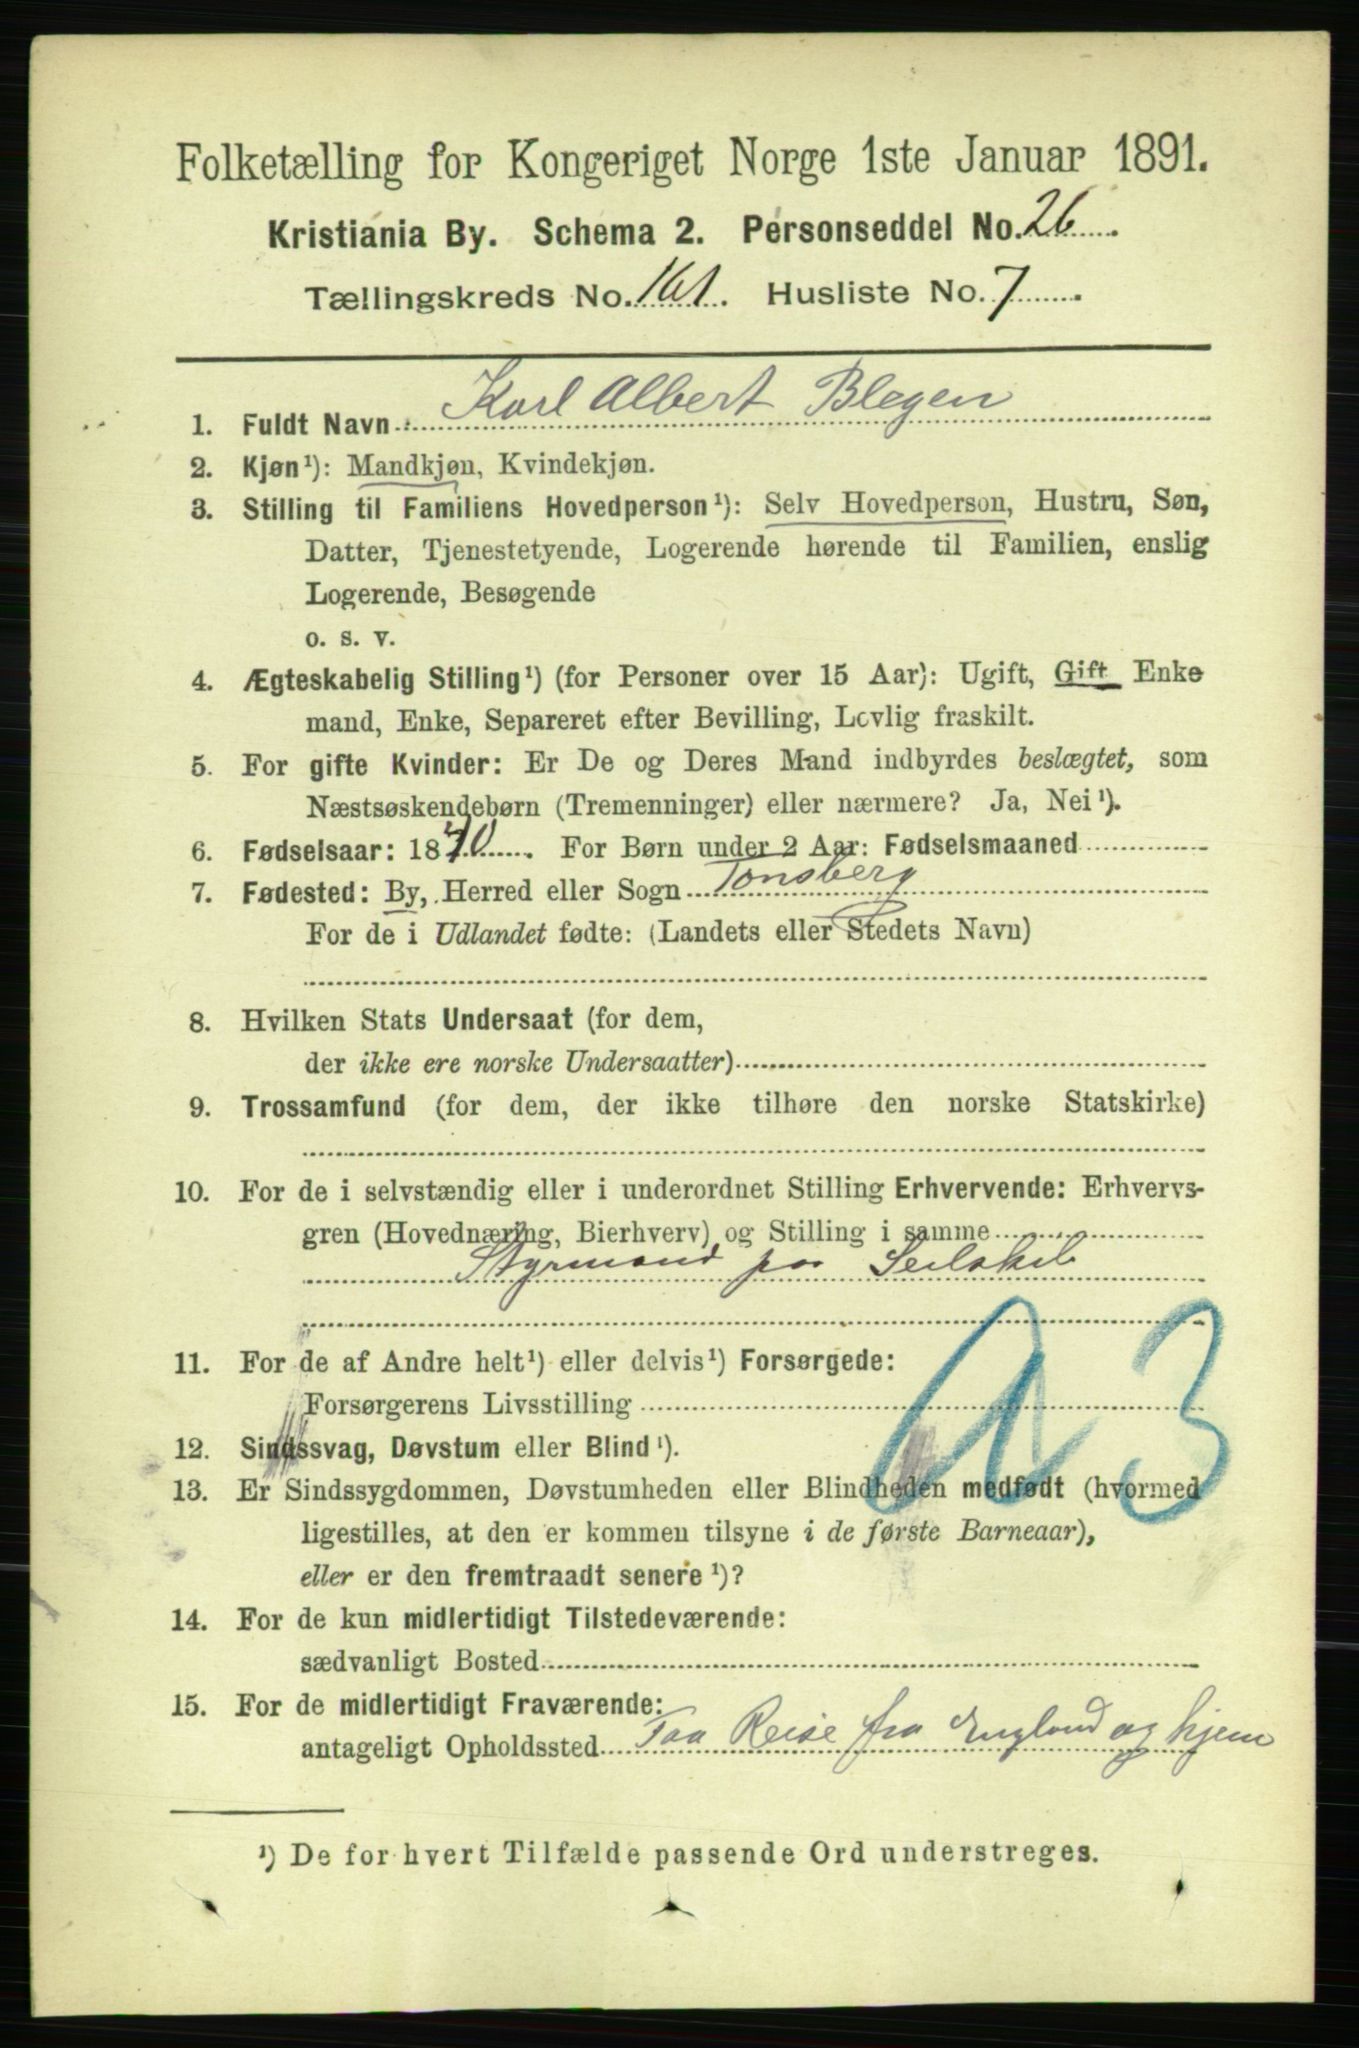 Folketælling for Kongeriget Norge 1ste Januar 1891.
Kristiania By. Schema 2. Personseddel No. 26.
Tællingskreds No. 161. Husliste No. 7.
1. Fuldt Navn Karl Albert Blegen
2. Kjøn¹): Mandkjøn, Kvindekjøn.
3. Stilling til Familiens Hovedperson¹): Selv Hovedperson, Hustru, Søn,
Datter, Tjenestetyende, Logerende hørende til Familien, enslig
Logerende, Besøgende
o. s. v.
4. Ægteskabelig Stilling¹) (for Personer over 15 Aar): Ugift, Gift Enke
mand, Enke, Separeret efter Bevilling, Lovlig fraskilt.
5. For gifte Kvinder: Er De og Deres Mand indbyrdes beslægtet, som
Næstsøskendebørn (Tremenninger) eller nærmere? Ja, Nei¹).
6. Fødselsaar: 18 . For Børn under 2 Aar: Fødselsmaaned
7. Fødested: By, Herred eller Sogn Tonsberg
For de i Udlandet fødte: (Landets eller Stedets Navn)
8. Hvilken Stats Undersaat (for dem,
der ikke ere norske Undersaatter)
9. Trossamfund (for dem, der ikke tilhøre den norske Statskirke)
10. For de i selvstændig eller i underordnet Stilling Erhvervende: Erhvervs-
gren (Hovednæring, Bierhverv) og Stilling i samme
Styrmand paa Seilskib
11. For de af Andre helt¹) eller delvis¹) Forsørgede:
Forsørgerens Livsstilling
A 3
12. Sindssvag, Døvstum eller Blind¹).
13. Er Sindssygdommen, Døvstumheden eller Blindheden medfødt (hvormed
ligestilles, at den er kommen tilsyne i de første Barneaar),
eller er den fremtraadt senere¹)?
14. For de kun midlertidigt Tilstedeværende:
sædvanligt Bosted
15. For de midlertidigt Fraværende:
antageligt Opholdssted Paa Reise fra England og hjem
¹) De for hvert Tilfælde passende Ord understreges.